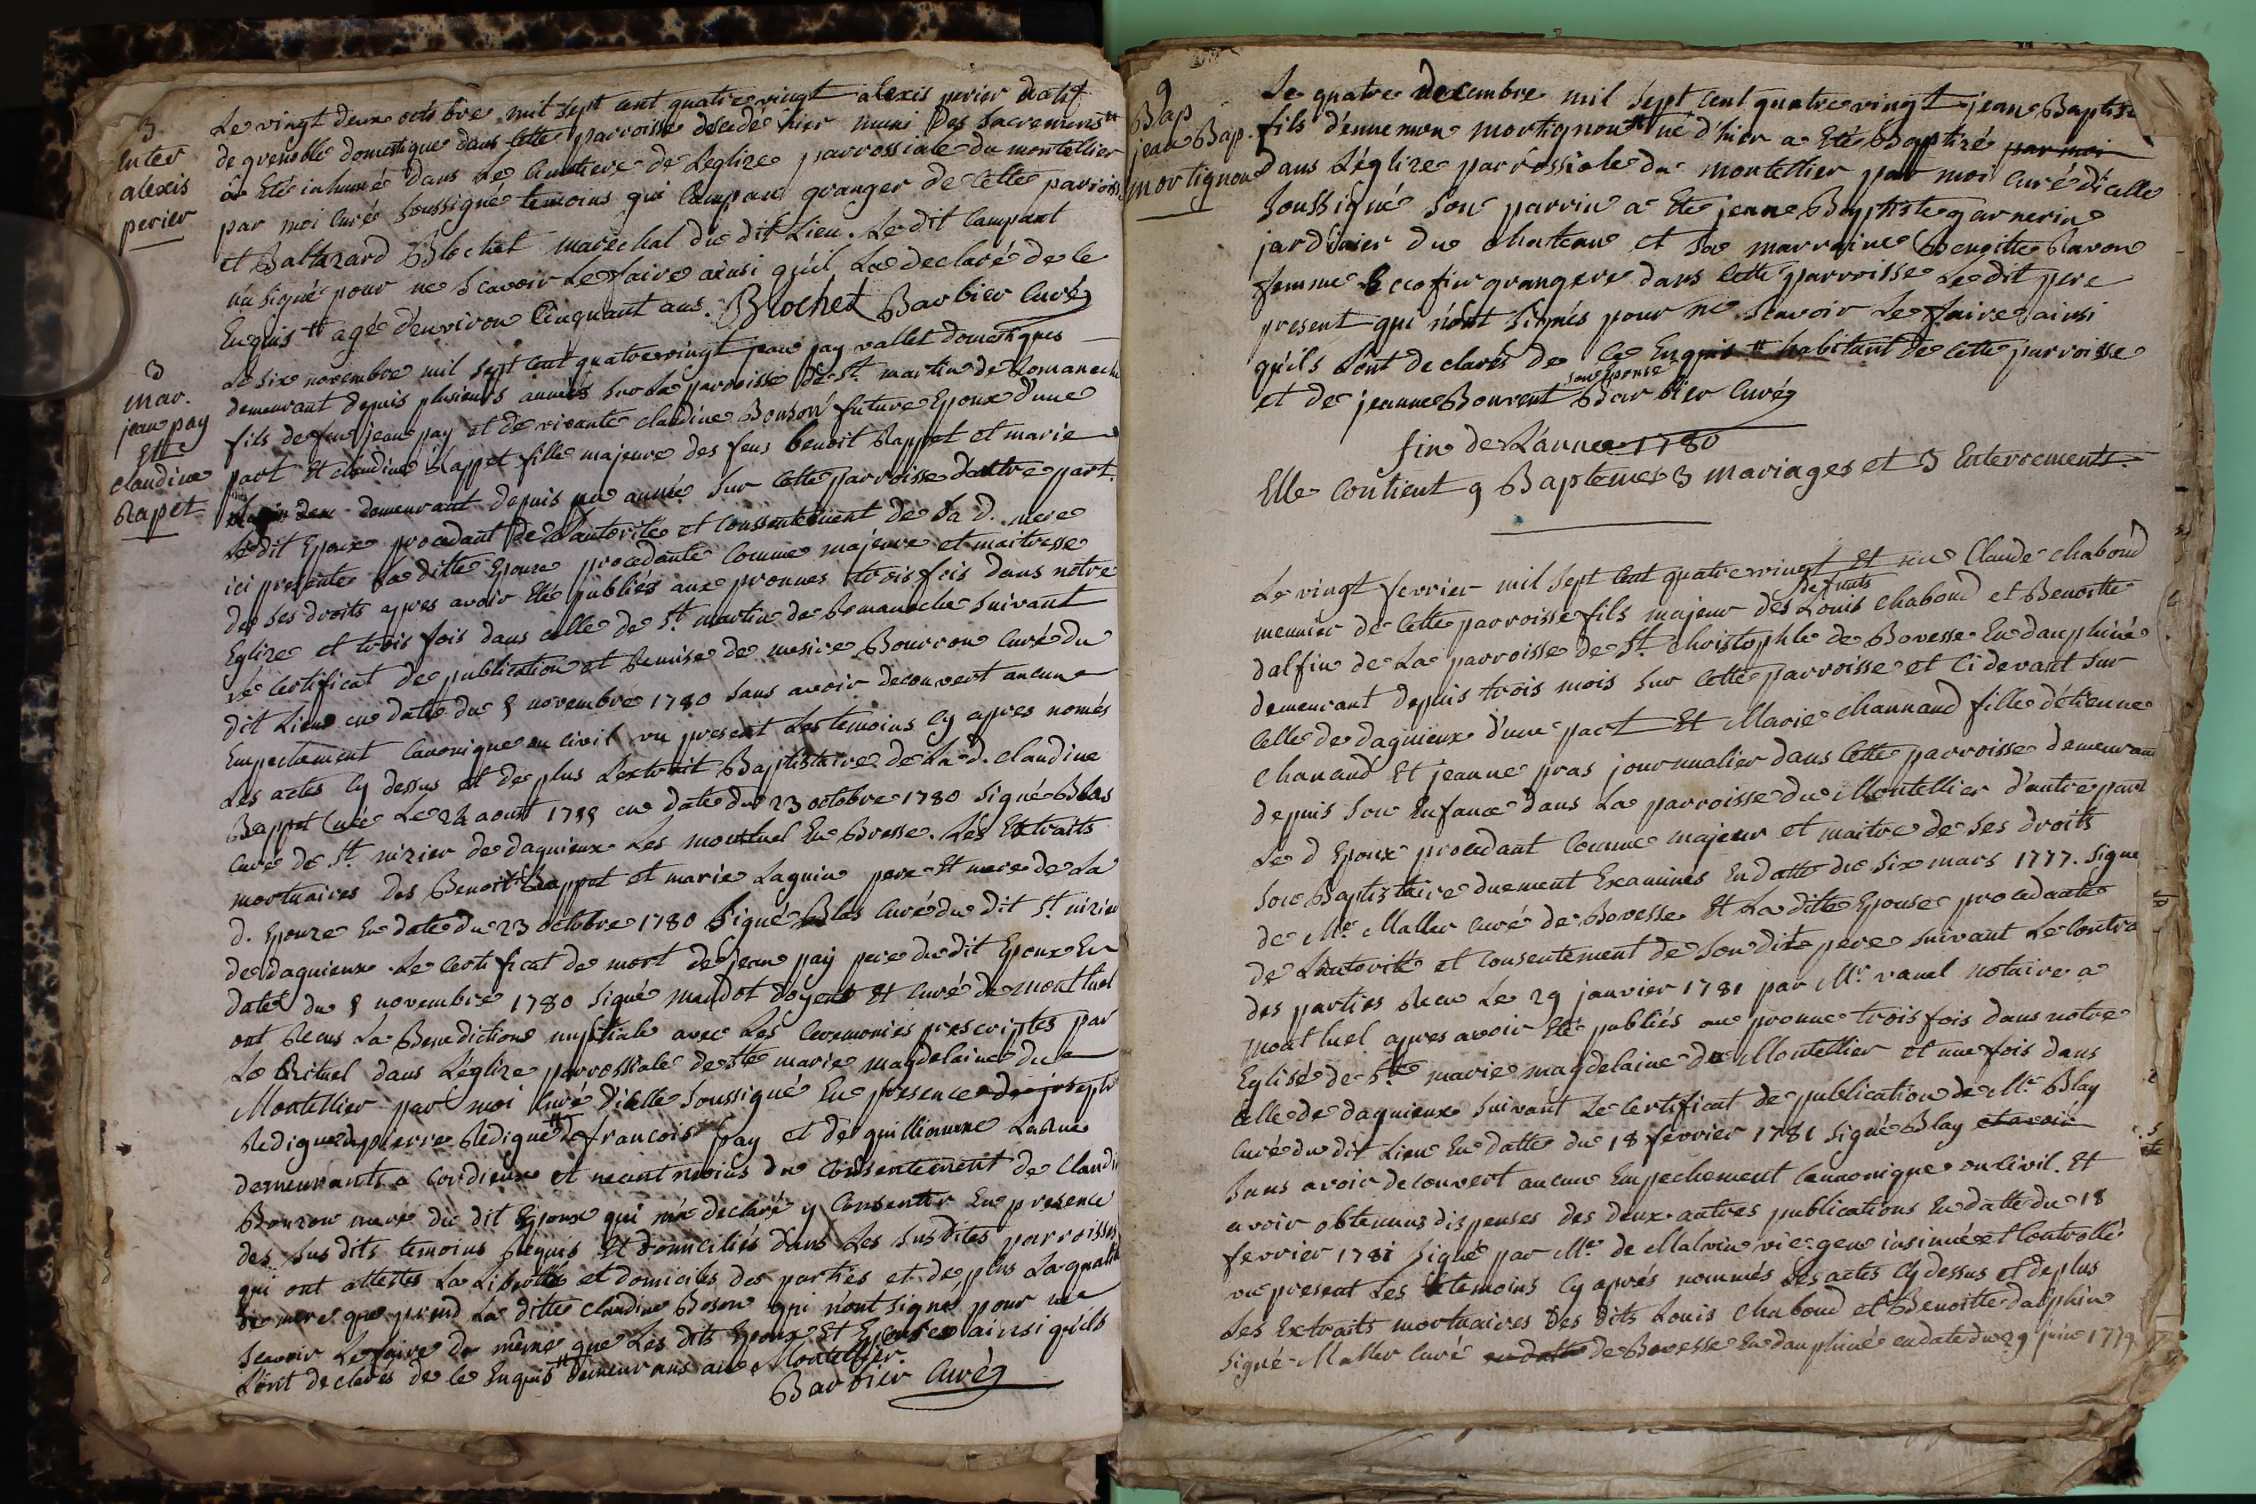 3
Enter
alexis
perier
Le vingt deux octobre mil sept cent quatre vingt alexis perier natif
de grenoble domestique dans cette parroisse decede hier muni des sacremens
a Eté inhumé dans Le Cimetiere de Leglize parrossiale du montellier
par moi curé soussigné temoins gui Campan granger de cette parroisse
et Baltazard Blochet marechal du dit Lieu. Le dit Campant
n'a signé pour ne scavoir Le faire ainsi qu'il La declaré de ce
Enquis agé d'environ Cinquant ans. Blochet Barbier Curé
3
mar.
jean pay
Et
claudine
Rapet
Le six novembre mil sept cent quatre vingt jean pay vallet domestiques
demeurant depuis plusieurs années sur La parroisse de St. martin de Romaneche
fils de feu jean pay et de vivante claudine Bonson future Epoux d'une
part Et claudine Rappet fille majeure des feus benoit Rappet et marie
demeurant depuis une année sur Cette parroisse d'autre part.
Le dit Epoux procedant de L'autorité et consentement de sa d. mere
ici presente La ditte Epouze procedante comme majeure et maitresse
de ses droits apres avoir Eté publiés aux pronnes trois fois dans notre
Eglize et trois fois dans celle de St. martin de Romaneche suivant
Le Certificat de publication et Remise de mesire Bourron curé du
dit Lieu en date du 5 novembre 1780 sans avoir decouvert aucun
Empechement Canonique ou civil vu present Les temoins cy apres només
Les actes cy dessus et de plus L'extrait Baptistaire de La d. claudine
Rappet née Le 22 aout 1755 en date du 23 octobre 1780 signé Blas
Curé de St. nizier de dagnieux Les montluel En Bresse. Les Extraits
mortuaires des Benoit Rappet et marie Laguin pere Et mere de La
d. Epouze En date du 23 octobre 1780 signé Blas Curé du dit St. nizier
de dagnieux. Le Certificat de mort de jean pay pere du dit Epoux En
date du 5 novembre 1780 signé mandot doyen Et curé de montluel
ont Recus La Benediction nuptiale avec Les Ceremonies prescriptes par
Le Rituel dans L'églize parrossiale de ste marie magdelaine du
Montellier par moi Curé d'icelle soussigné En presence de joseph
Redigue de pierre Redigue de francois pay et de guillaume LaRue
demeurants a Cordieux et neant moins du Consentement de claudine
Bonzon mere du dit Epoux qui m'a declaré y Consentir En presence
des sus dits temoins Requis Et domiciliés dans Les sus dites parroisses
qui ont attestes La Liberté et domiciles des parties et de plus La qualité
de mere que prend La ditte claudine Boson qui n'ont signé pour ne
scavoir Le faire de même que Les dits Epoux Et Epouse ainsi qu'ils
L'ont declarés de ce Enquis demeurans au Montellier.
Barbier Curé
9
Bap
jean Bap.
mortignon
Le quatre decembre mil sept cent quatre vingt jean Baptiste
fils d'ennemon mortignon né d'hier a Eté Baptizé par moi
dans L'églize parrossiale du montellier par moi curé d'icelle
soussigné son parrin a Eté jean Baptiste garnerin
jardinier du chateau et sa marraine Benoitte Ravon
femme Ecofier grangere dans Cette parroisse Le dit pere
present qui n'ont signés pour ne scavoir Le faire ainsi
qu'ils L'ont declarés de ce Enquis habitant de cette parroisse
son Epouse
et de jeanne Bouvent Barbier Curé
fin de L'année 1780
Elle contient 9 Baptemes 3 mariages et 3 Enterrements.
Le vingt fevrier mil sept cent quatre vingt Et un Claude chaboud
defunts
meunier de Cette parroisse fils majeur des Louis chaboud et Benoitte
dalfin de La parroisse de St. christophle de Bovesse En dauphiné
demeurant depuis trois mois sur Cette parroisse et Ci devant sur
Celle de dagnieux d'une part Et Marie channaud fille d'étienne
chanaud Et jeanne pras journnalier dans Cette parroisse demeurant
depuis son Enfance dans La parroisse du Montellier d'autre part
Le d Epoux procedant Comme majeur et maitre de ses droits
son Baptistaire duement Examinés En datte du six mars 1777. signé
de Mr. Maller curé de Bovesse Et La ditte Epouse procedante
de L'autorité et consentement de son dit pere suivant Le Contra
des parties Recu Le 29 janvier 1781 par Mr. ravel notaire a
montluel apres avoir Eté publiés au pronne trois fois dans notre
Eglise de Ste marie magdelaine du Montellier et une fois dans
Celle de dagnieux suivant Le Certificat de publication de Mr. Blay
Curé du dit Lieu En datte du 18 fevrier 1781 signé Blay et avoir
sans avoir decouvert aucun Empechement Cannonique ou Civil. Et
avoir obtenus dispenses des deux autres publications En datte du 18
fevrier 1781 signé par Mr. de Malvin vic. gen insinué et Controllé
vu present Les temoins cy aprés nommés Les actes cy dessus et de plus
Les Extraits mortuaires des dits Louis chaboud et Benoitte dalphin
signé Maller curé en datte de Bovesse En dauphiné en date du 29 juin 1779